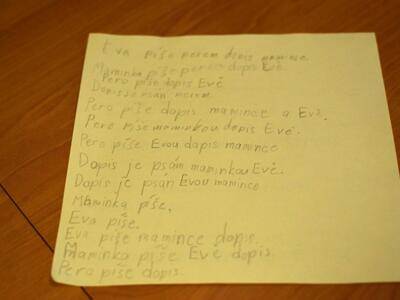 Eva píše perem dopis mamince.
Maminka píše perem dopis Evě.
Pero píše dopis Evě
Dopis je psán perem.
Pero píše dopis mamince a Evě.
Pero píše maminkou dopis Evě.
Pero píše Evou dopis mamince
Dopis je psám maminkou Evě.
Dopis je psán Evou mamince
Maminka píše.
Eva píše.
Eva píše mamince dopis.
Maminka píše Evě dopis.
Pero píše dopis.